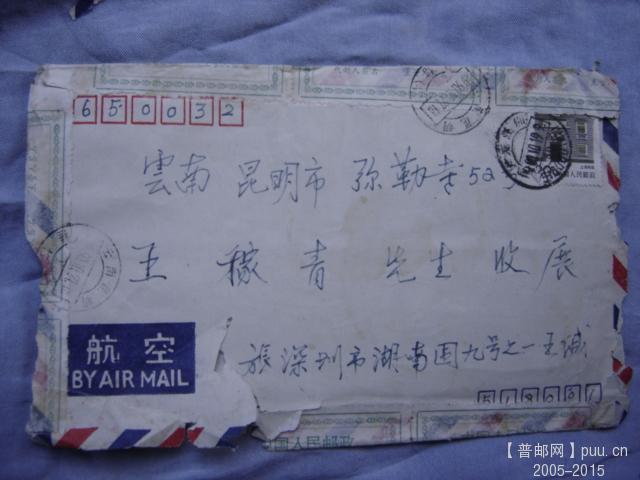 650032
雲南 昆明市 弥勒寺52号
王 稼 青 先生 收展
航空
BY AIR MAIL
旅深圳市湖南围九号之一王诚
518001
中国人民邮政
国人民邮政
【普邮网】puu.cn
2005-2015